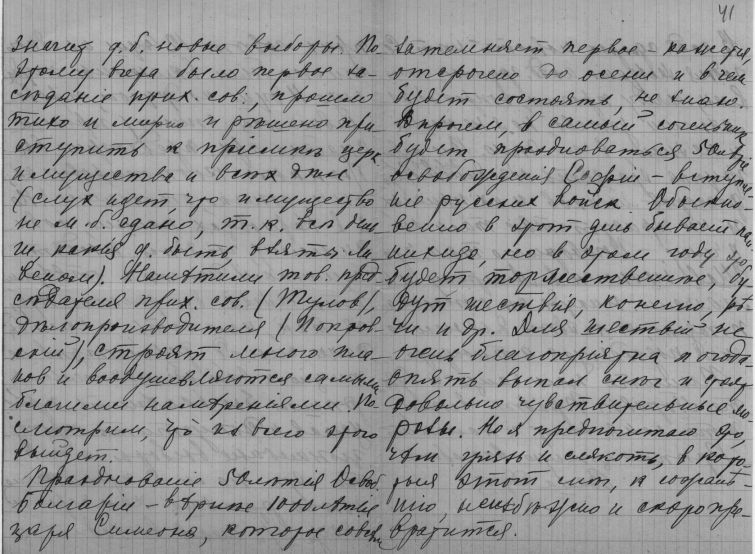 значит д.б. новые выборы. По-
этому вчера было первое за-
сѣданіе прих. сов., прошло
тихо и мирно и рѣшено при-
ступить к пріемкѣ церк.
имущества и всѣх дѣл
(слух идет, что имущество
не м.б. сдано, т.к. всѣ
д. быть взяты
). Намѣтили тов. пред-
сѣдателя прих. сов. (Жулов),
дѣлопроизводителя (Покров-
скій), строят много пла-
нов и воодушевляются самыми
благими намѣреніями. По-
смотрим, что из всего этого
выйдет.
Празднованіе 50лѣтія Освоб.
Болгаріи – 1000лѣтія
царя Симеона, которое совсѣм
41
затемняет первое – кажется,
отсрочено до осени и в чем
будет состоять, не знаю.
Впрочем, в самый
будет праздноваться 50лѣтіе
освобожденія Софіи – вступле-
ніе русских войск. Обыкно-
венно в этот день бывает па-
нихида, но в этом году
будет торжественнѣе, бу-
дут шествія, конечно, рѣ-
чи и др. Для шествій не
очень благопріятна погода
опять выпал снѣг и стоят
довольно чувствительные мо-
розы. Но я предпочитаю это,
чѣм грязь и слякоть, в кото-
рыя этот снѣг, к сожалѣ-
нію, неизбѣжно и скоро пре-
вратится.